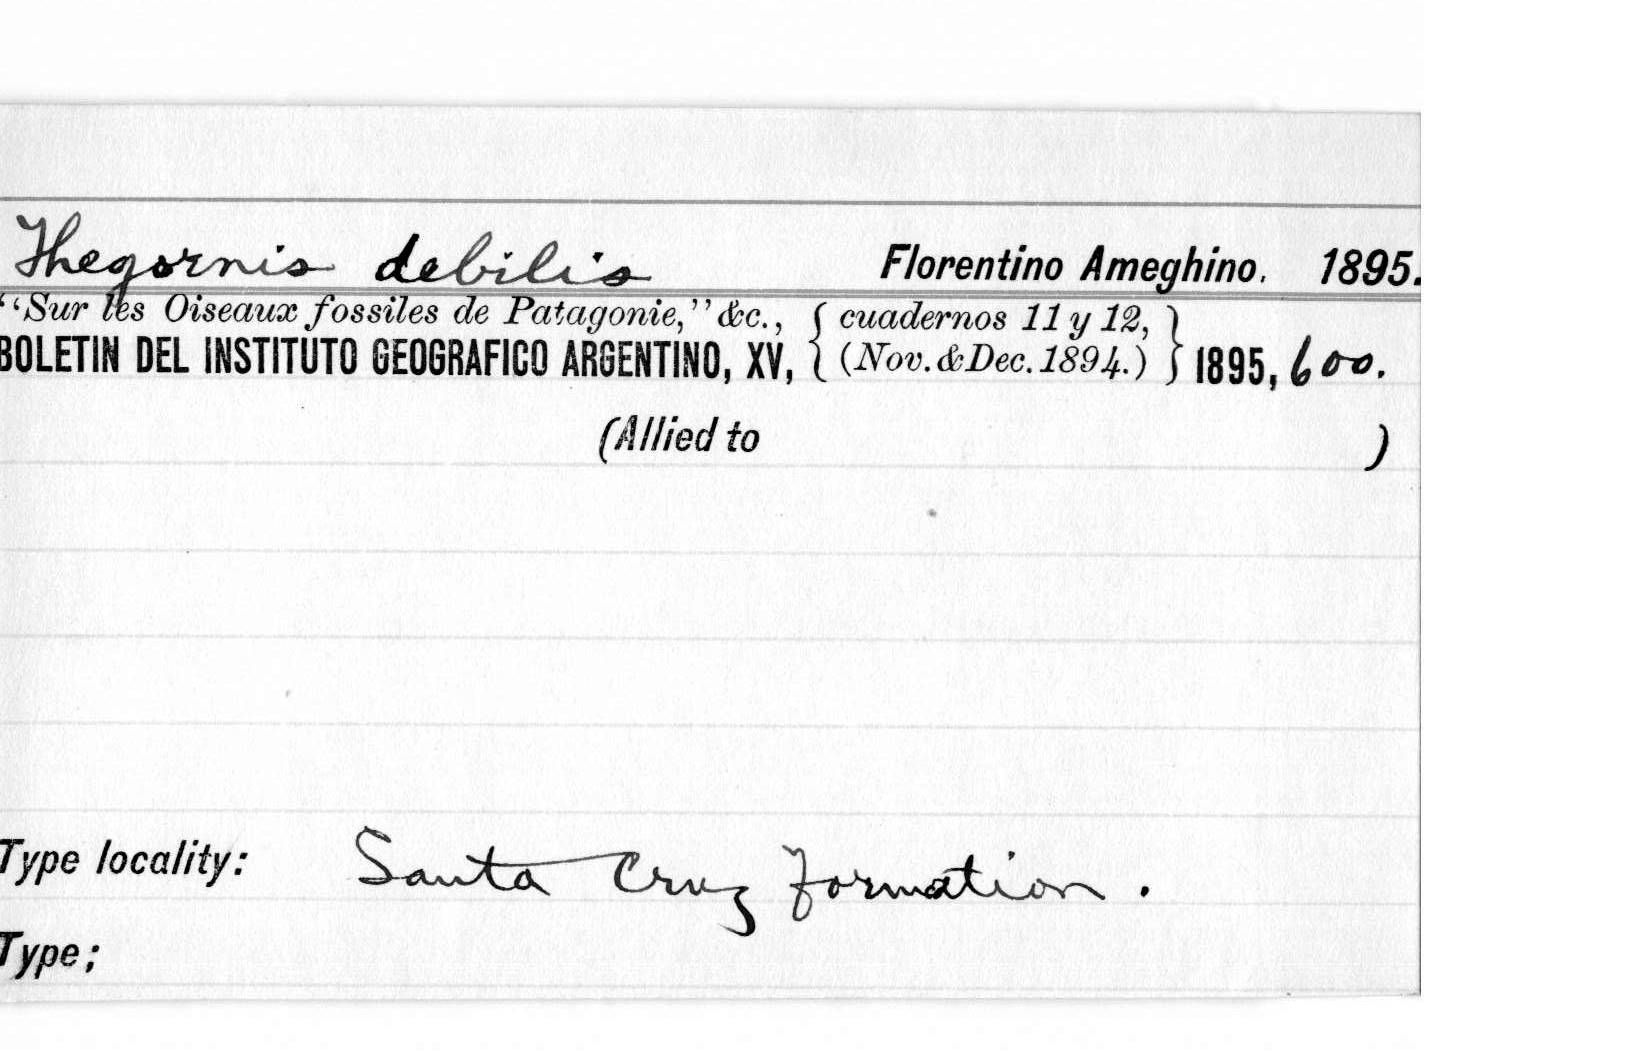 Thegornis debilis Florentino Ameghino. 1895.
"Sur les Oiseaux fossiles de Patagonie," &c., { cuadernos 11 y 12, }
BOLETIN DEL INSTITUTO GEOGRAFICO ARGENTINO, XV, { (Nov. & Dec. 1894.) } 1895, 600.
(Allied to )
Type locality: Santa Cruz formation.
Type;